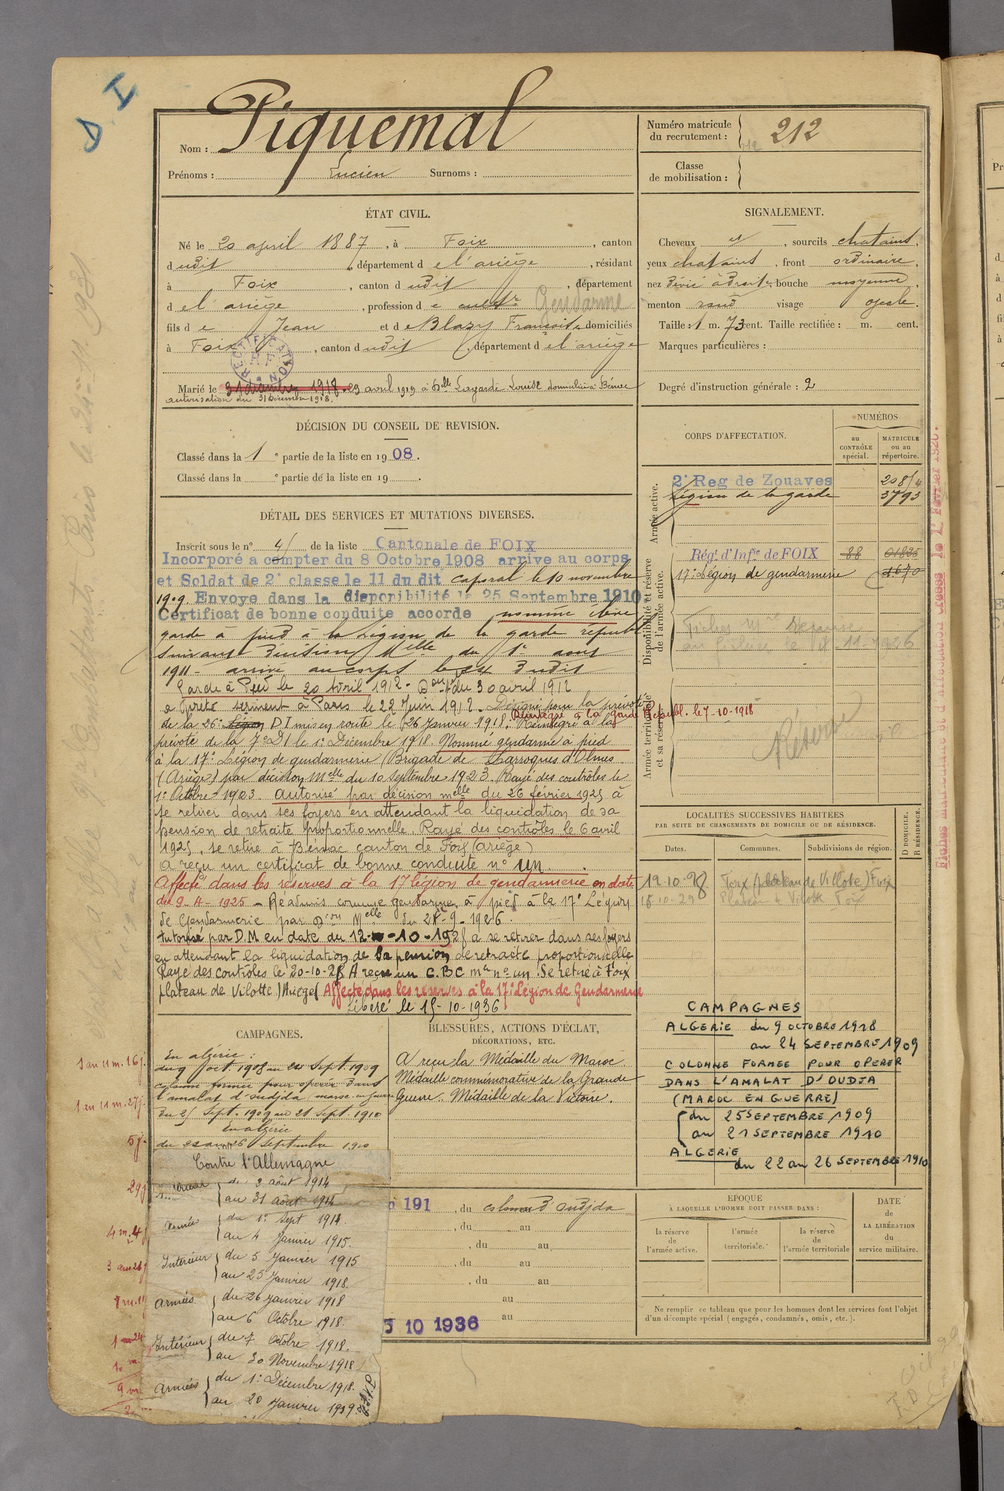 Piquemal
Nom :
Prénoms : Lucien Surnoms :
Numéro matricule
du recrutement : 212
Classe
de mobilisation :
ÉTAT CIVIL.
Né le 20 avril 1887, à Foix, canton
dudit, département de l'ariège, résidant
à Foix, canton dudit, département
de l'ariège, profession de cultr Gendarme
fils de Jean et de Blazy Françoise domiciliés
à Foix, canton dudit, département de l'ariège
RECTIFICATION
Marié le 31 décembre 1918. 29 avril 1919 à Lagarde Louise
autorisation du 31 Décembre 1918.
SIGNALEMENT.
Cheveux et, sourcils chatains.
yeux chatains, front ordinaire
nez dévié à droite bouche moyenne
menton rond visage ovale
Taille : 1 m. 73 cent. Taille rectifiée : m. cent.
Marques particulières :
Degré d'instruction générale : 2
DÉCISION DU CONSEIL DE REVISION.
Classé dans la 1e partie de la liste en 1908.
Classé dans la e partie de la liste en 19
DÉTAIL DES SERVICES ET MUTATIONS DIVERSES.
Inscrit sous le n° 41 de la liste Cantonale de FOIX
Incorporé a compter du 8 Octobre 1908 arrive au corps
et Soldat de 2e classe le 11 du dit caporal le 10 novembre
1909. Envoye dans la disponibilité le 25 Septembre 1910
Certificat de bonne conduite accorde nommé élève
garde à pied à la Légion de la garde républ
suivant décision Melle du 1er aout
1911 arrivé au corps le dudit
Garde à Pied le 20 Avril 1912 - Don du 30 avril 1912
a preté serment à Paris le 22 Juin 1912. Désigné pour la prévoté
de la 26e D.I mis en route le 26 Janvier 1918. Réintègre à la garde Républ. le 7-10-1918 Réintègre à la
prévoté de la 7e D.I le 1er Décembre 1918. Nommé gendarme à pied
à la 17e Légion de gendarmerie (Brigade de Larroques d'Olmes
(Ariège) par décision Melle du 10 septembre 1923. Rayé des contrôles le
1er Octobre 1923. Autorisé par décision melle du 26 février 1925 à
se retirer dans ses foyers en attendant la liquidation de sa
pension de retraite proportionnelle. Rayé des contrôles le 6 avril
1925, se retire à Benac canton de Foix (ariège)
a reçu un certificat de bonne conduite n° un.
Affecté dans les réserves à la 17 légion de gendarmerie en date
du 9-4-1925 - Réadmis comme gendarme à pied à la 17e Légion
de Gendarmerie par Don Melle du 21-9-1926.
Autorisé par D.M en date du 12-10-1928 à se retirer dans ses foyers
en attendant la liquidation de sa pension de retraite proportionnelle
Rayé des contrôles le 20-10-28 A reçu un C.B.C n° un. Se retire à Foix
plateau de Vilotte (Ariège) Affecté dans les réserves à la 17e Légion de Gendarmerie
Libéré le 15-10-1936
CORPS D'AFFECTATION.
NUMÉROS
au
CONTRÔLE
spécial.
MATRICULE
ou au
répertoire.
Armée active.
2e Reg de Zouaves 208/4
Légion de la garde 3793
Disponibilité et réserve
de l'armée active.
Régt d'Infie de FOIX 88
17e Légion de gendarmerie 1670
Armée territoriale
et sa réserve.
Réserve
LOCALITÉS SUCCESSIVES HABITÉES
PAR SUITE DE CHANGEMENTS DE DOMICILE OU DE RÉSIDENCE.
Dates. Communes. Subdivisions de région.
D DOMICILE.
R RÉSIDENCE.
19-10-28 Foix (plateau de Vilote) Foix
15-10-29 Plateau de Vilote Foix
CAMPAGNES
ALGERIE du 9 OCTOBRE 1918
au 24 SEPTEMBRE 1909
COLONNE FORMEE POUR OPERER
DANS L'AMALAT D'OUDJA
(MAROC EN GUERRE)
du 25 SEPTEMBRE 1909
au 21 SEPTEMBRE 1910
ALGERIE
du 22 au 26 SEPTEMBRE 1910
CAMPAGNES.
En algérie :
du 9 oct 1908 au 24 Sept. 1909
colonne formée pour opérer dans
l'amalat d'oudjda, maroc en guerre
du 25 Sept. 1909 au 21 Sept. 1910
En algérie
du 22 au 26 Septembre 1910
BLESSURES, ACTIONS D'ÉCLAT,
DÉCORATIONS, ETC.
A reçu la Médaille du Maroc
Médaille commémorative de la Grande
Guerre. Médaille de la Victoire.
Contre l'Allemagne
Intérieur du 2 août 1914
au 31 Août 1914
Armées du 1er Sept 1914
au 4 Janvier 1915.
Intérieur du 5 Janvier 1915
au 25 Janvier 1918.
Armées du 26 Janvier 1918
au 6 Octobre 1918.
Intérieur du 7 Octobre 1918.
au 30 Novembre 1918
Armées du 1er Décembre 1918.
au 20 Janvier 1919
1 an 11 m. 16 j.
1 an 11 m. 27 j.
5 j.
29 j.
191, du colonne d'Oudjda
, du au
, du au
, du au
au
au
5 10 1936
ÉPOQUE
À LAQUELLE L'HOMME DOIT PASSER DANS :
la réserve
de
l'armée active.
l'armée
territoriale.
la réserve
de
l'armée territoriale
DATE
de
LA LIBÉRATION
du
service militaire.
Ne remplir ce tableau que pour les hommes dont les services font l'objet
d'un décompte spécial (engagés, condamnés, omis, etc.).